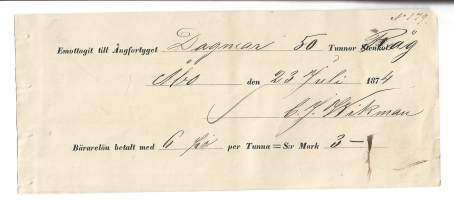 No 179.
Emottagit till Ångfartyget Dagmar 50 Tunnor Stenkol Råg
Åbo den 23 Juli 1874
C. J. Wikman
Bärarelön betalt med 6 pi per Tunna = S:r Mark 3 –